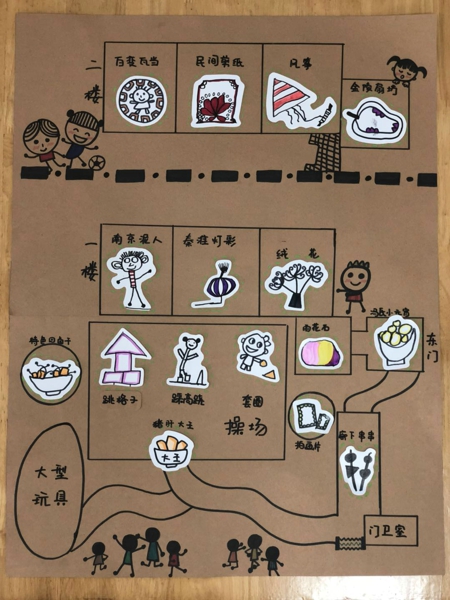 二楼
百变瓦当
民间剪纸
风筝
金陵扇坊
一楼
南京泥人
秦淮灯彩
绒花
雨花石
东门
特色回卤干
跳格子
踩高跷
套圈
操场
糖芋大王
大王
拍画片
廊下串串
大型玩具
门卫室